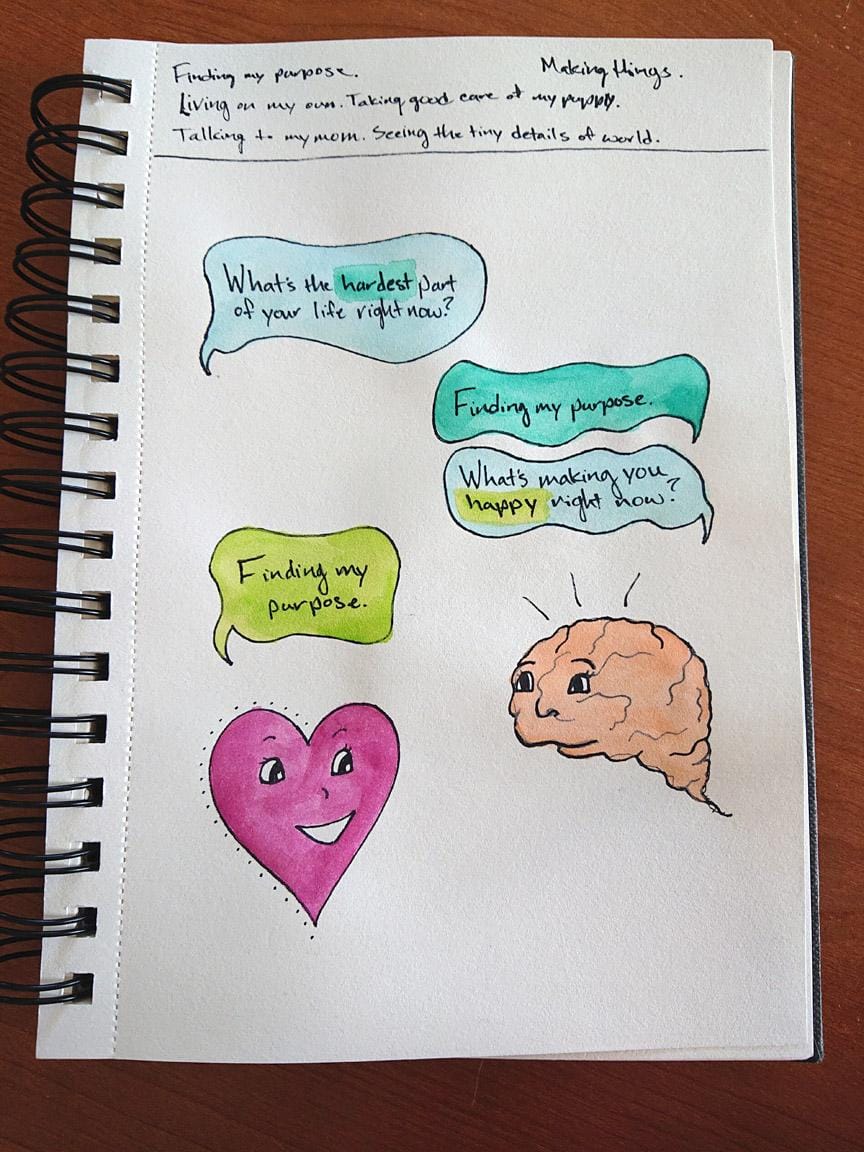 Finding my purpose. Making things.
Living on my own. Taking good care of my puppy.
Talking to my mom. Seeing the tiny details of world.
What's the hardest part
of your life right now?
Finding my purpose.
What's making you
happy right now?
Finding my
purpose.